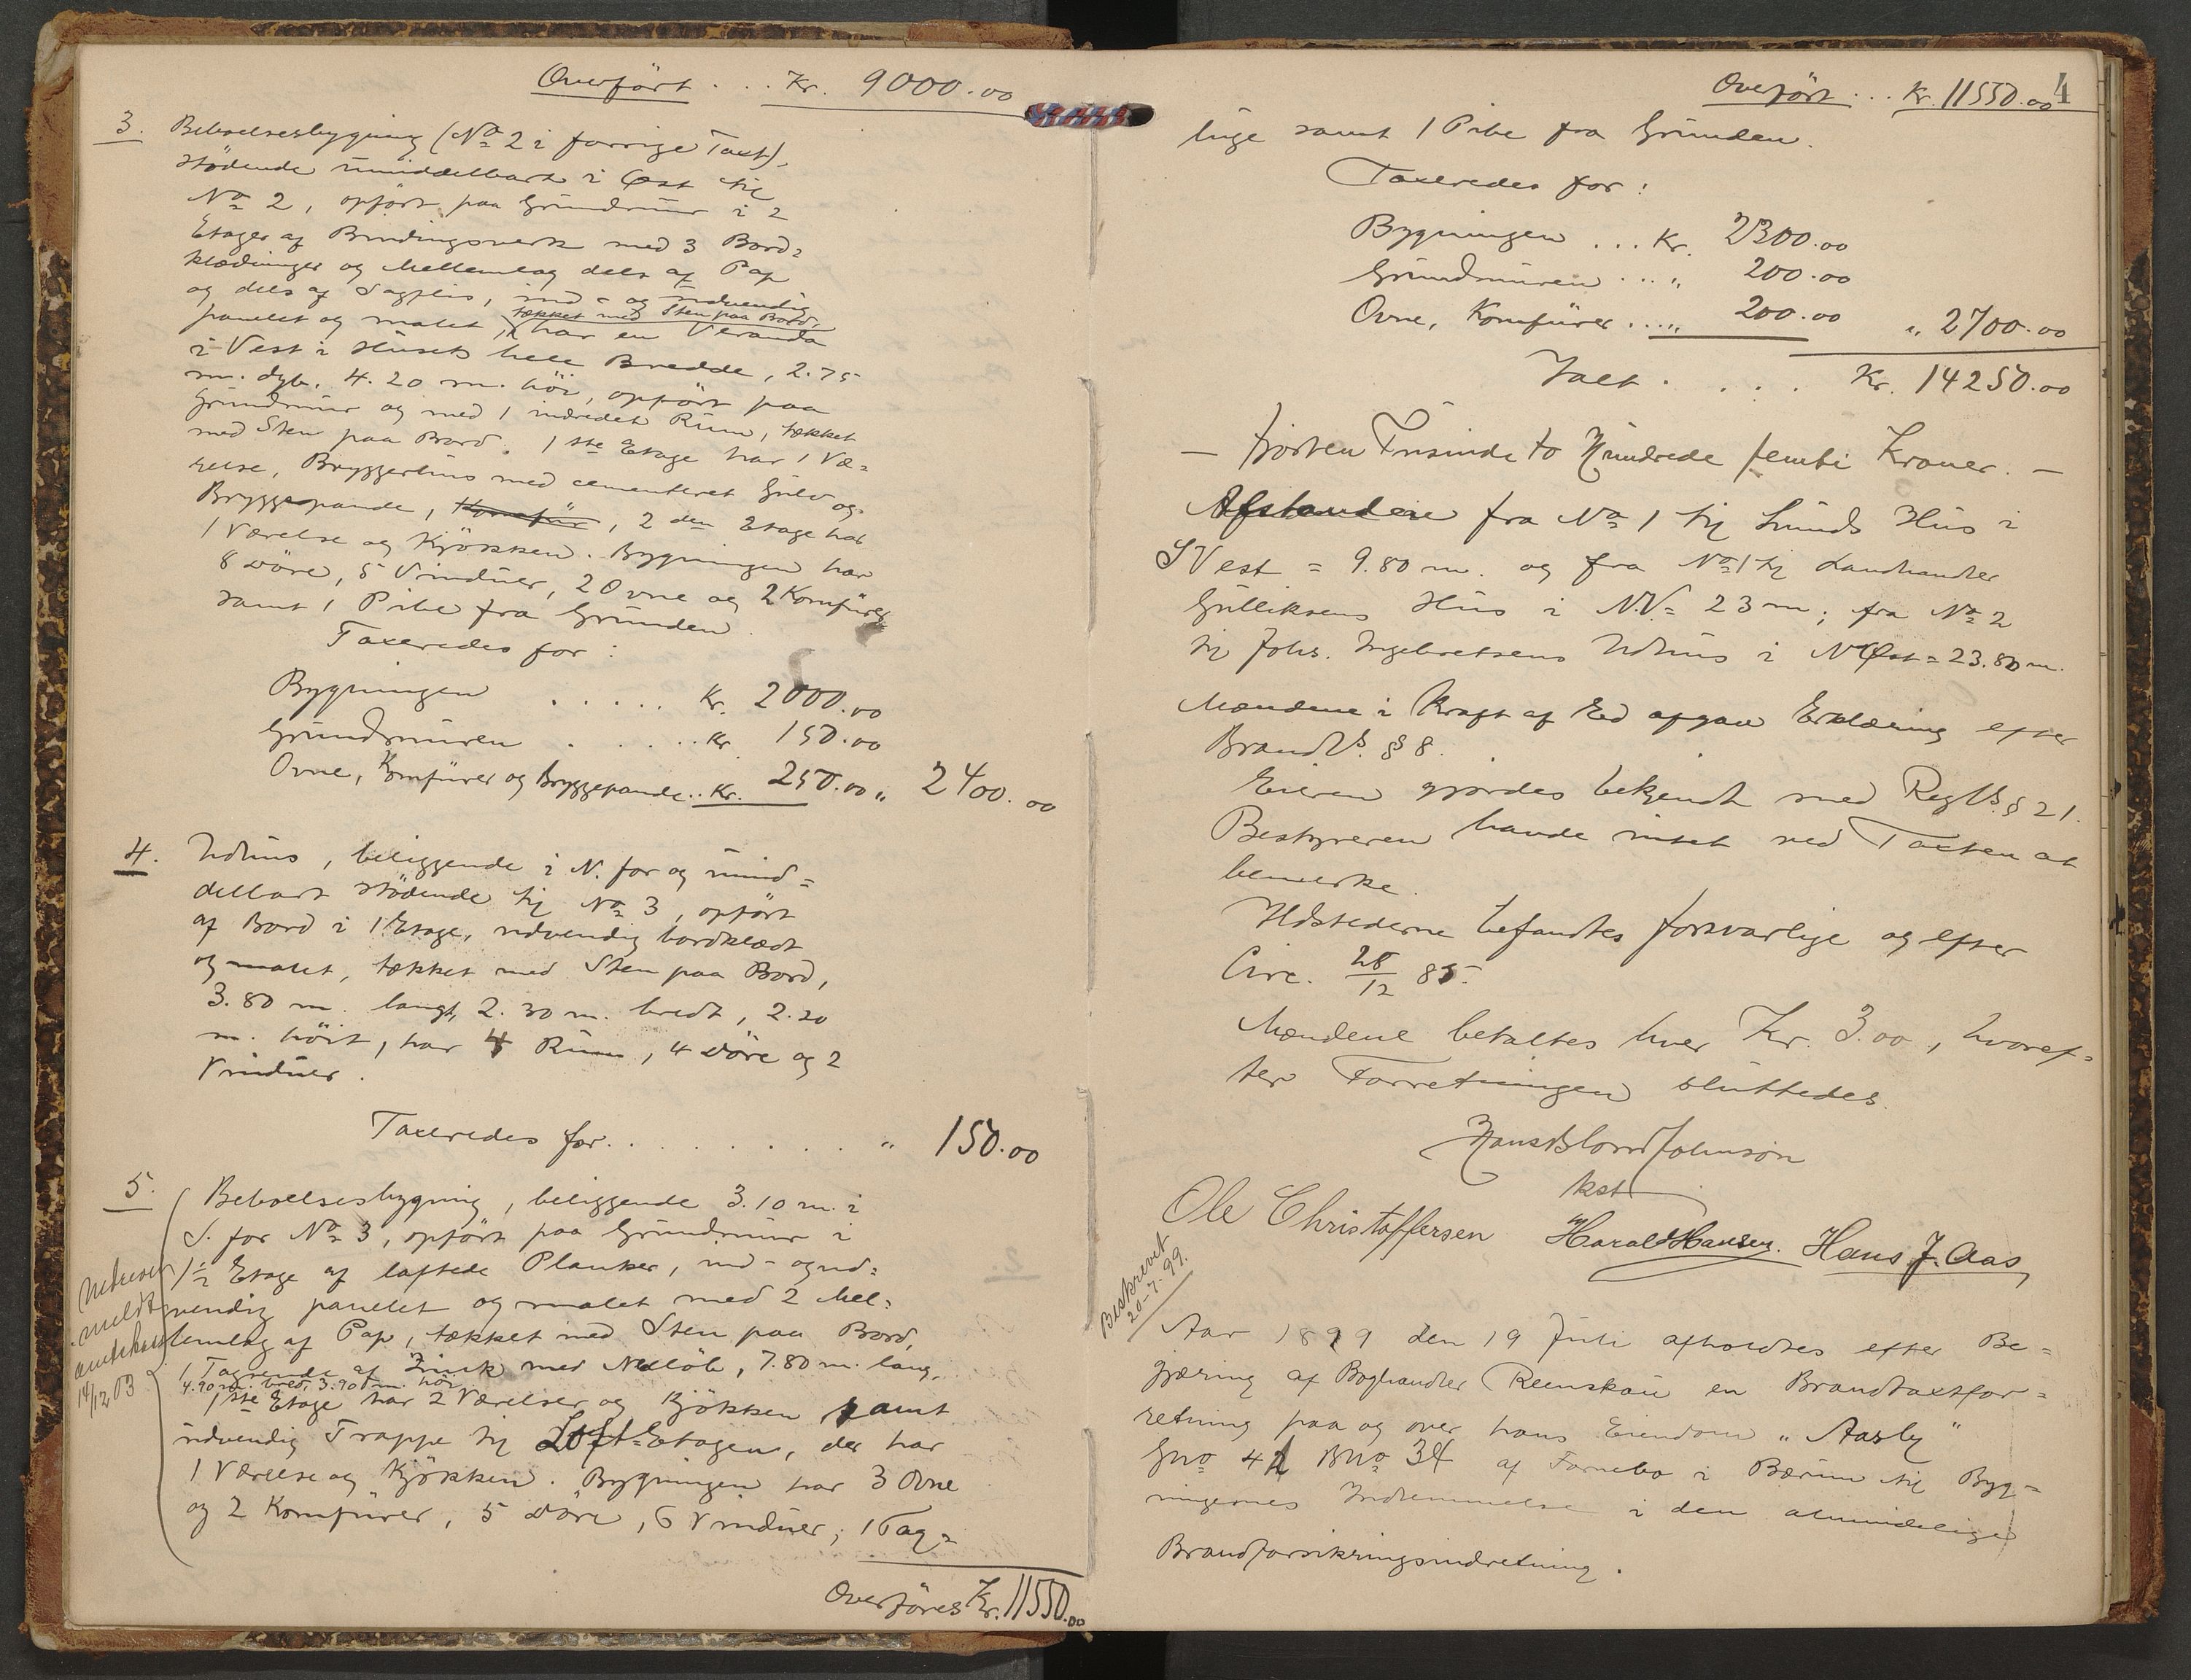 Overfört . . . Kr. 9000.00
3. Beboelsesbygning (No 2 i forrige Taxt),
stödende umiddelbart i Øst til
No 2, opfört paa Grundmur i 2
Etager af Bindingsverk med 3 Bord=
klædninger og Mellemlag dels af Pap
og dels af Sagflis, ind- og udvendig
tækket med Sten paa Bord,
panelet og malet, har en Veranda
i Vest i Husets hele Bredde, 2.75
m. dyb, 4.20 m. höi, opfört paa
Grundmur og med 1 indredet Rum, tækket
med Sten paa Bord. 1ste Etage har 1 Væ=
relse, Bryggerhus med cementeret Gulv og
Bryggepande, Komfür, 2den Etage har
1 Værelse og Kjökken. Bygningen har
8 Döre, 5 Vinduer, 2 Ovne og 2 Komfürer
samt 1 Pibe fra Grunden.
Taxeredes for:
Bygningen . . . . . Kr. 2000.00
Grundmuren . . . . . Kr 150.00
Ovne, Komfürer og Bryggepande . . Kr. 250.00 " 2400.00
4. Udhus, beliggende i N. for og umid=
delbart stödende til No 3, opfört
af Bord i 1 Etage, udvendig bordklædt
og malet, tækket med Sten paa Bord,
3.80 m. langt, 2.30 m. bredt, 2.20
m. höit, har 4 Rum, 4 Döre og 2
Vinduer.
Taxeredes for . . . . . . . . . " 150.00
5. Beboelsesbygning, beliggende 3.10 m. i
S. for No 3, opfört paa Grundmur i
1½ Etage af laftede Planker, ind- og ud=
vendig panelet og malet med 2 Mel=
lemlag af Pap, tækket med Sten paa Bord,
1 Tagrende af Zink med Nedlöb, 7.80 m. lang,
4.90 m. bred, 3.90 m. höi,
1ste Etage har 2 Værelser og Kjökken samt
udvendig Trappe til Loft-Etagen, der har
1 Værelse og Kjökken. Bygningen har 3 Ovne
og 2 Komfürer, 5 Döre, 6 Vinduer, 1 Tag=
Overföres Kr. 11550.00
meldt
14/12 03
Overfört . . . Kr. 11550.00
4
luge samt 1 Pibe fra Grunden.
Taxeredes for:
Bygningen . . . Kr. 2300.00
Grundmuren . . . " 200.00
Ovne, Komfürer . . . " 200.00 " 2700.00
Ialt . . . . Kr. 14250.00
— fjorten Tusinde to Hundrede femti Kroner. —
Afstandene fra No 1 til Lunds Hus i
S Vest = 9.80 m. og fra No 1 til Landhandler
Gulliksens Hus i N.V. = 23 m; fra No 2
til Johs. Ingebretsens Udhus i N Øst = 23.80 m.
Mændene i Kraft af Ed afgav Erklæring efter
Brandl. § 8.
Eieren gjordes bekjendt med Regl. § 21.
Bestyreren havde intet ved Taxten at
bemerke.
Ildstederne befandtes forsvarlige og efter
Circ. 28/12 85.
Mændene betaltes hver Kr. 3.00, hvoref=
ter Forretningen sluttedes.
Hans Blom Johnson
kst
Ole Christoffersen Harald Hansen. Hans J. Aas
Beskrevet
20-7-99.
Aar 1899 den 19 Juli afholdtes efter Be=
gjæring af Boghandler Reenskau en Brandtaxtfor=
retning paa og over hans Eiendom „Aasly"
Gno 41 Bno 34 af Fornebo i Bærum til Byg=
ningernes Indlemmelse i den almindelige
Brandforsikringsindretning.